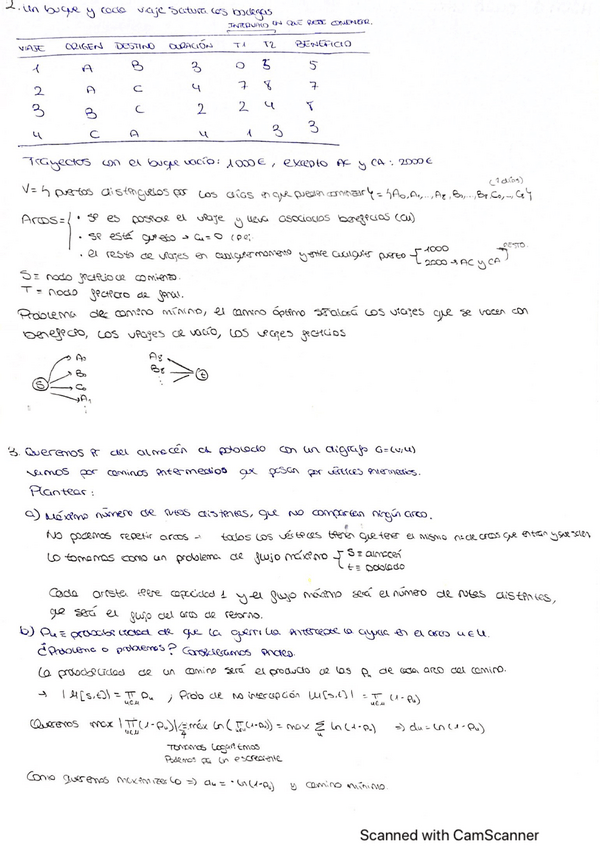 2. Un buque y cada viaje satura las bodegas
INTERVALO EN QUE DEBE COMENZAR.
VIAJE ORIGEN DESTINO DURACIÓN T1 T2 BENEFICIO
1 A B 3 0 5 5
2 A C 4 7 8 7
3 B C 2 2 4 8
4 C A 4 1 3 3
Trayectos con el buque vacío: 1000€, excepto AC y CA: 2000€
V = { puertos distinguidos por los días en que pueden comenzar } = { A0, A1, ..., A8, B0, ..., B8, C0, ..., C8 }
Arcos = { · si es posible el viaje y lleva asociados beneficios (Cu)
· si está quieto → Cu = 0
· el resto de viajes en cualquier momento y entre cualquier puerto { 1000
2000 → AC y CA
S = nodo ficticio de comienzo.
T = nodo ficticio de final.
Problema de camino mínimo, el camino óptimo señalará los viajes que se hacen con
beneficio, los viajes de vacío, los viajes ficticios
S A0 B0 C0 A1
A8 B8 t
3. Queremos ir del almacén al poblado con un digrafo G=(V,U)
vamos por caminos intermedios que pasan por vértices intermedios.
Plantear:
a) Máximo número de rutas distintas, que no compartan ningún arco.
No podemos repetir arcos → todos los vértices tienen que tener el mismo nº de arcos que entran y que salen
Lo tomamos como un problema de flujo máximo { S = almacén
t = poblado
Cada arista tiene capacidad 1 y el flujo máximo será el número de rutas distintas,
que será el flujo del arco de retorno.
b) Pu = probabilidad de que la guerrilla intercepte la ayuda en el arco u∈U.
¿Problema o problemas? Consideramos
La probabilidad de un camino será el producto de las Pu de cada arco del camino.
→ |M[s,t]| = π Pu , Prob de no intercepción |M[s,t]| = π (1-Pu)
u∈M u∈M
Queremos max |π(1-Pu)| = máx ln(π(1-Pu)) = max Σ ln(1-Pu) ⇒ du = ln(1-Pu)
Tomamos logaritmos
Como queremos maximizarlo ⇒ du = -ln(1-Pu) y camino mínimo.
Scanned with CamScanner